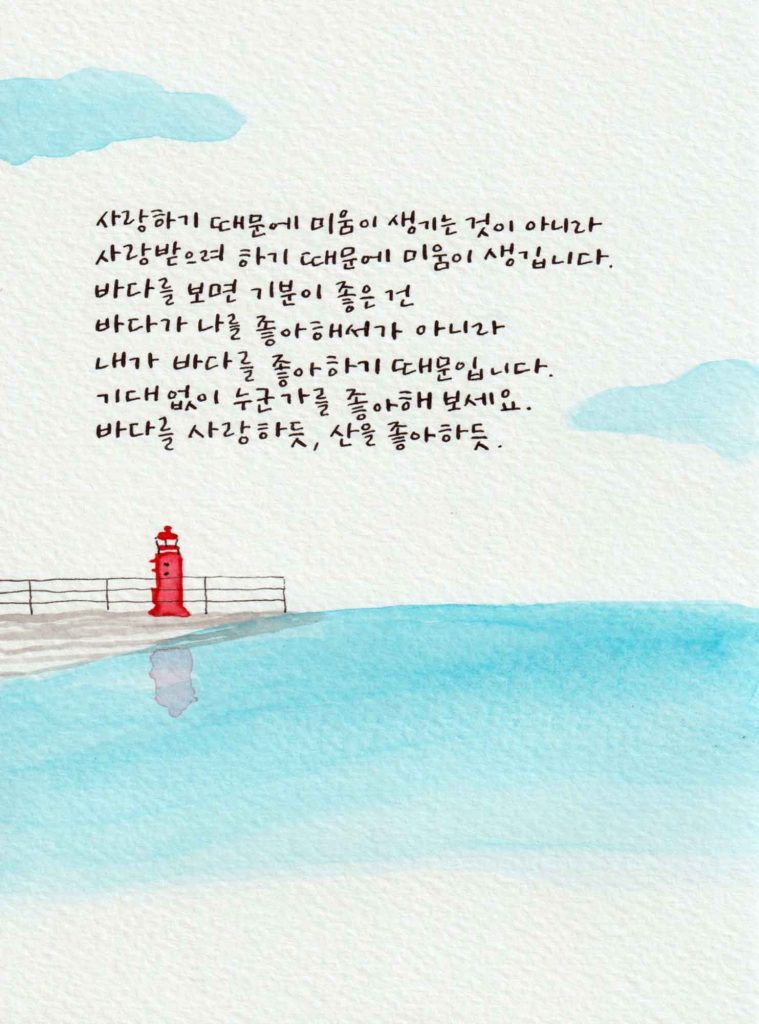 사랑하기 때문에 미움이 생기는 것이 아니라
사랑받으려 하기 때문에 미움이 생깁니다.
바다를 보면 기분이 좋은 건
바다가 나를 좋아해서가 아니라
내가 바다를 좋아하기 때문입니다.
기대 없이 누군가를 좋아해 보세요.
바다를 사랑하듯, 산을 좋아하듯.